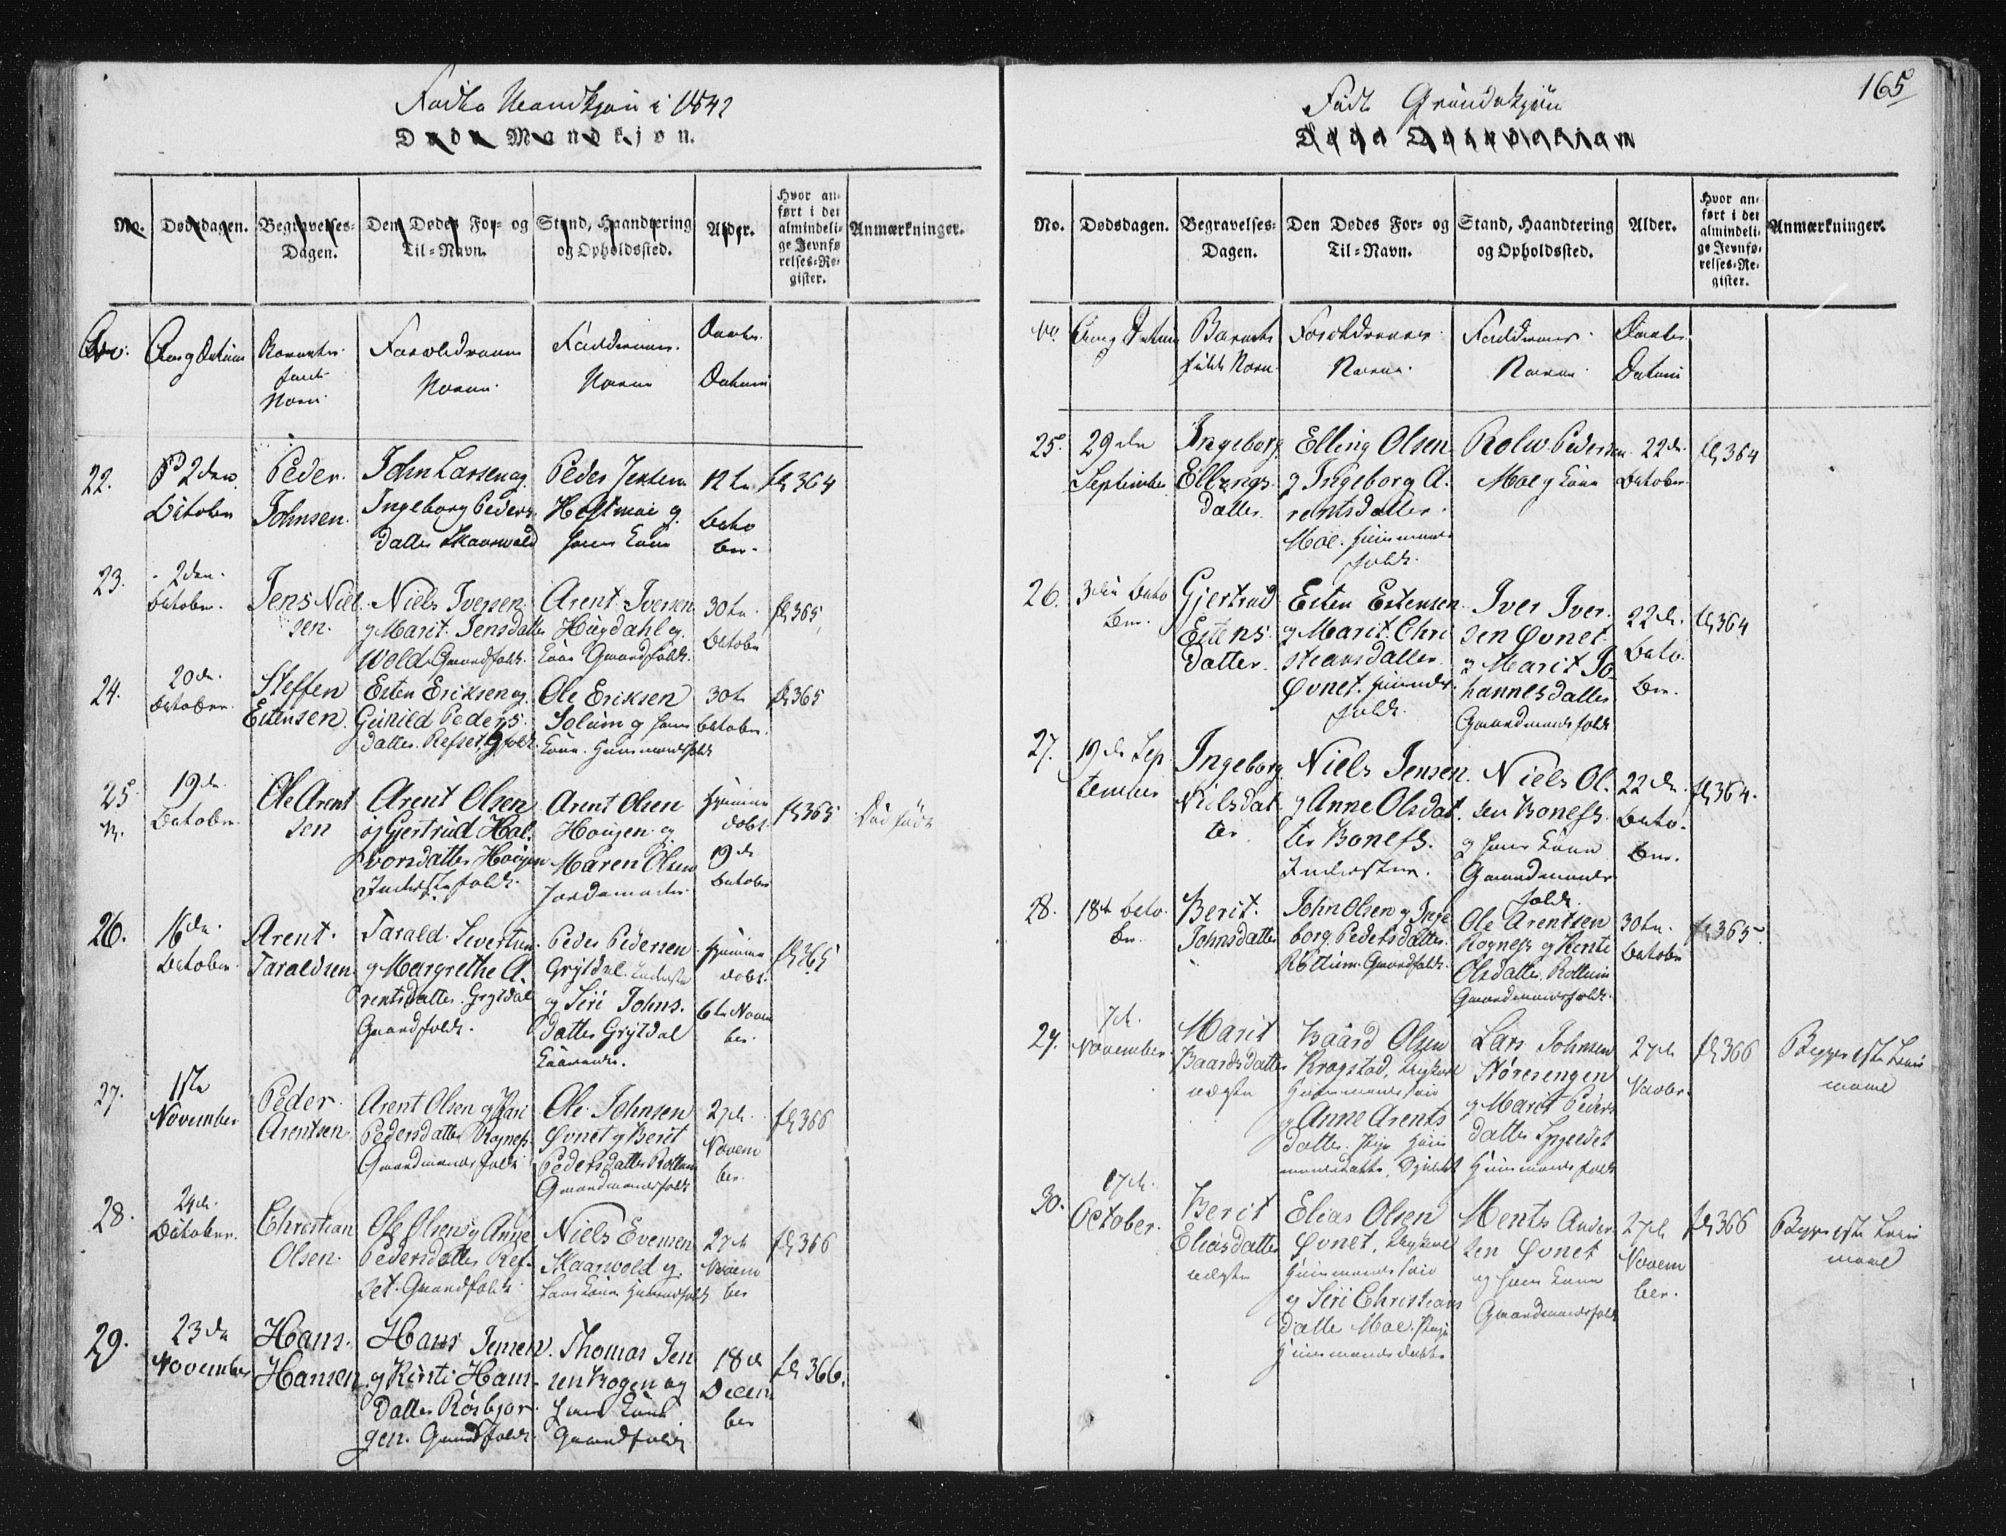 Fødte Mandkjøn i 1842
Døde Mandkjøn.
No.
Dødsdagen.
Begravelses-
Dagen.
Den Dødes For- og
Til-Navn.
Stand, Haandtering
og Opholdssted.
Alder.
Hvor an-
ført i det
almindeli-
ge Jevnfø-
relses-Re-
gister.
Anmærkninger.
Aar og Datum
Barnets
fulde
Navn.
Forældrenes
Navne.
Faddernes
Navne
Daabs
Datum
22.
2den
October
Peder
Johnsen.
John Larsen og
Ingeborg Peders
datter Skaarvold
Peder Jensen
Hestmoe og
hans Kone
12te
Octo
ber.
fl 364
23.
2den
October.
Jens Niel
sen.
Niels Iversen
og Marit Jensdatter
Wold Gaardfolk.
Arent Iversen
Hugdahl og
Kone Gaardfolk.
30te
October
fl 365
24.
20de
October.
Steffen
Estensen.
Esten Eriksen og
Gunild Peders
datter Refset, Gfolk.
Ole Eriksen
Solum og hans
Kone. Huusmandsfolk
30te
October.
fl 365
25
19de
October.
Ole Arent
sen
Arent Olsen
og Gjertrud Hal-
vorsdatter Hougen
Inderstefolk.
Arent Olsen
Hougen og
Maren Olsen
Jordemoder
Hjemme
døbt
19de
October
fl 365
Dødfødt
26.
16de
October.
Arent
Taraldsen
Tarald Sivertsen
og Margrethe A-
rentsdatter Grytdal
Gaardfolk.
Peder Pedersen
Grytdal Inderste
og Siri Johns-
datter Grytdal
Hjemme
døbt.
6te Novem
ber.
fl 365
27.
1ste
November
Peder
Arentsen
Arent Olsen og Kari
Pedersdatter Rognes
Gaardmandsfolk
Ole Johnsen
Øvnet og Berit
Pedersdatter Rottum
Gaardmandsfolk
27de
Novem
ber.
fl 366
28.
24de
October.
Christian
Olsen.
Ole Olsen og Anne
Pedersdatter Ref-
set. Gaardfolk
Niels Evensen
Skaarvold og
hans Kone Huusmandsfolk
27de
Novem
ber
fl 366
29.
23de
November
Hans
Hansen
Hans Jensen
og Kirsti Hans-
datter Røsbjør-
gen. Gaardfolk
Thomas Jen
sen Bogen og
hans Kone
Gaardfolk
18de
Decem
ber
fl 366.
165
Født Qvindekjøn
Døde Qvindekjøn
No.
Dødsdagen.
Begravelses-
Dagen.
Den Dødes For- og
Til-Navn.
Stand, Haandtering
og Opholdssted.
Alder.
Hvor an-
ført i det
almindeli-
ge Jevnfø-
relses-Re-
gister.
Anmærkninger.
No.
Aar og Datum
Barnets
fulde Navn.
Forældrenes
Navne.
Faddernes
Navne.
Daabs
Datum
25.
29de
September
Ingeborg
Ellings
datter.
Elling Olsen
og Ingeborg A-
rentsdatter
Moe. Huusmands
folk.
Rolw Pedersen
Moe og Kone
22de
October
fl 364
26.
3die Octo
ber.
Gjertrud
Estens
datter.
Esten Estensen
og Marit Chri
stiansdatter
Øvnet. Huusmds
folk.
Iver Iver-
sen Øvnet
og Marit Jo-
hannesdatter
Gaardmandsfolk
22de
Octo-
ber.
fl 364
27.
19de Sep
tember
Ingeborg
Nielsdat
ter
Niels Jensen
og Anne Olsdat-
ter Bones.
Inderster.
Niels Ol-
sen Bones
og hans Kone
Gaardmands
folk.
22de
Octo-
ber.
fl 364.
28.
18de Octo
ber.
Berit
Johnsdatter
John Olsen og Inge
borg Pedersdatter
Rottum. Gaardfolk.
Ole Arentsen
Rognes og Kirsti
Olsdatter Rottum
Gaardmandsfolk.
30te
October
fl 365.
29.
7de
November.
Marit
Baardsdatter
uægte
Baard Olsen
Krogstad, Ungkarl
Huusmandssøn
og Anne Arents
datter. Pige Huus
mandsdatter,
Lars Johnsen
Størensengen
og Marit Peders
datter
Huusmandsfolk
27de
Novbr.
fl 366
Begges 1ste Leier
maal
30.
17de
October.
Berit
Eliasdatter
uægte
Elias Olsen
Øvnet, Ungkarl
Huusmandssøn
og Siri Christians
datter Moe. Pige
Huusmandsdatter
Ments Ander
sen Øvnet
og hans Kone
Gaardmandsfolk
27de
Novem
ber.
fl 366
Begges 1ste Leier
maal